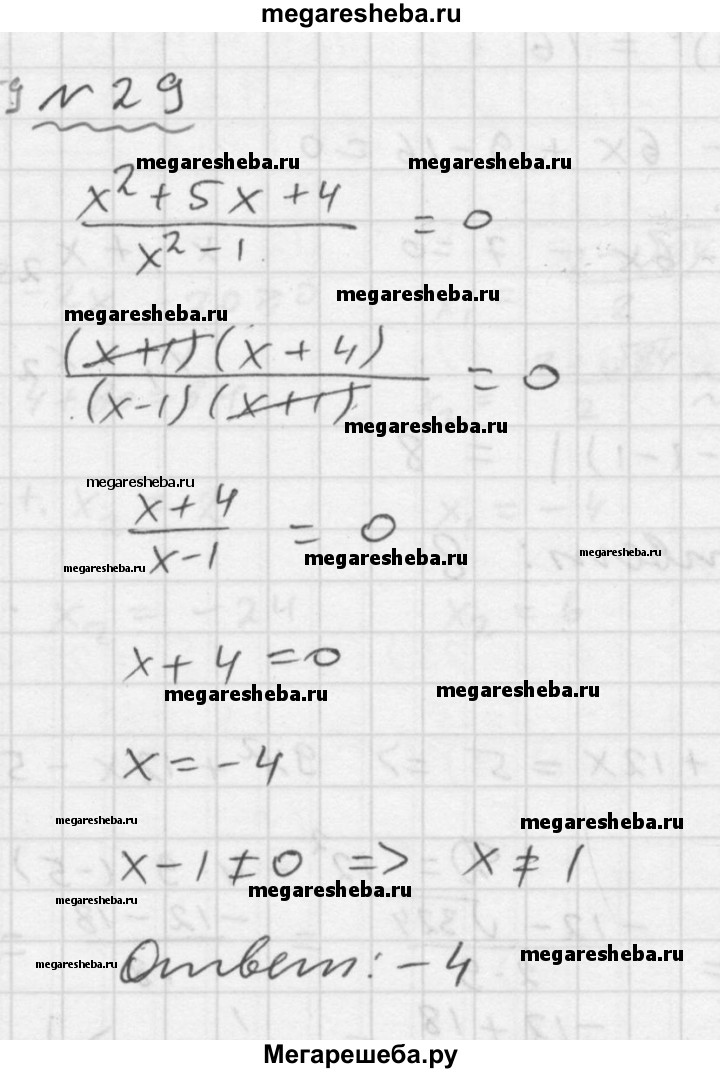 megaresheba.ru
№ 29
megaresheba.ru megaresheba.ru
x² + 5x + 4
= 0
x² - 1
megaresheba.ru
megaresheba.ru
(x+1)(x + 4)
= 0
(x-1)(x+1)
megaresheba.ru
megaresheba.ru
x + 4
= 0
x - 1
megaresheba.ru megaresheba.ru megaresheba.ru
x + 4 = 0
megaresheba.ru megaresheba.ru
x = -4
megaresheba.ru megaresheba.ru
x - 1 ≠ 0 => x ≠ 1
megaresheba.ru megaresheba.ru
Ответ: -4
megaresheba.ru megaresheba.ru
Мегарешеба.ру